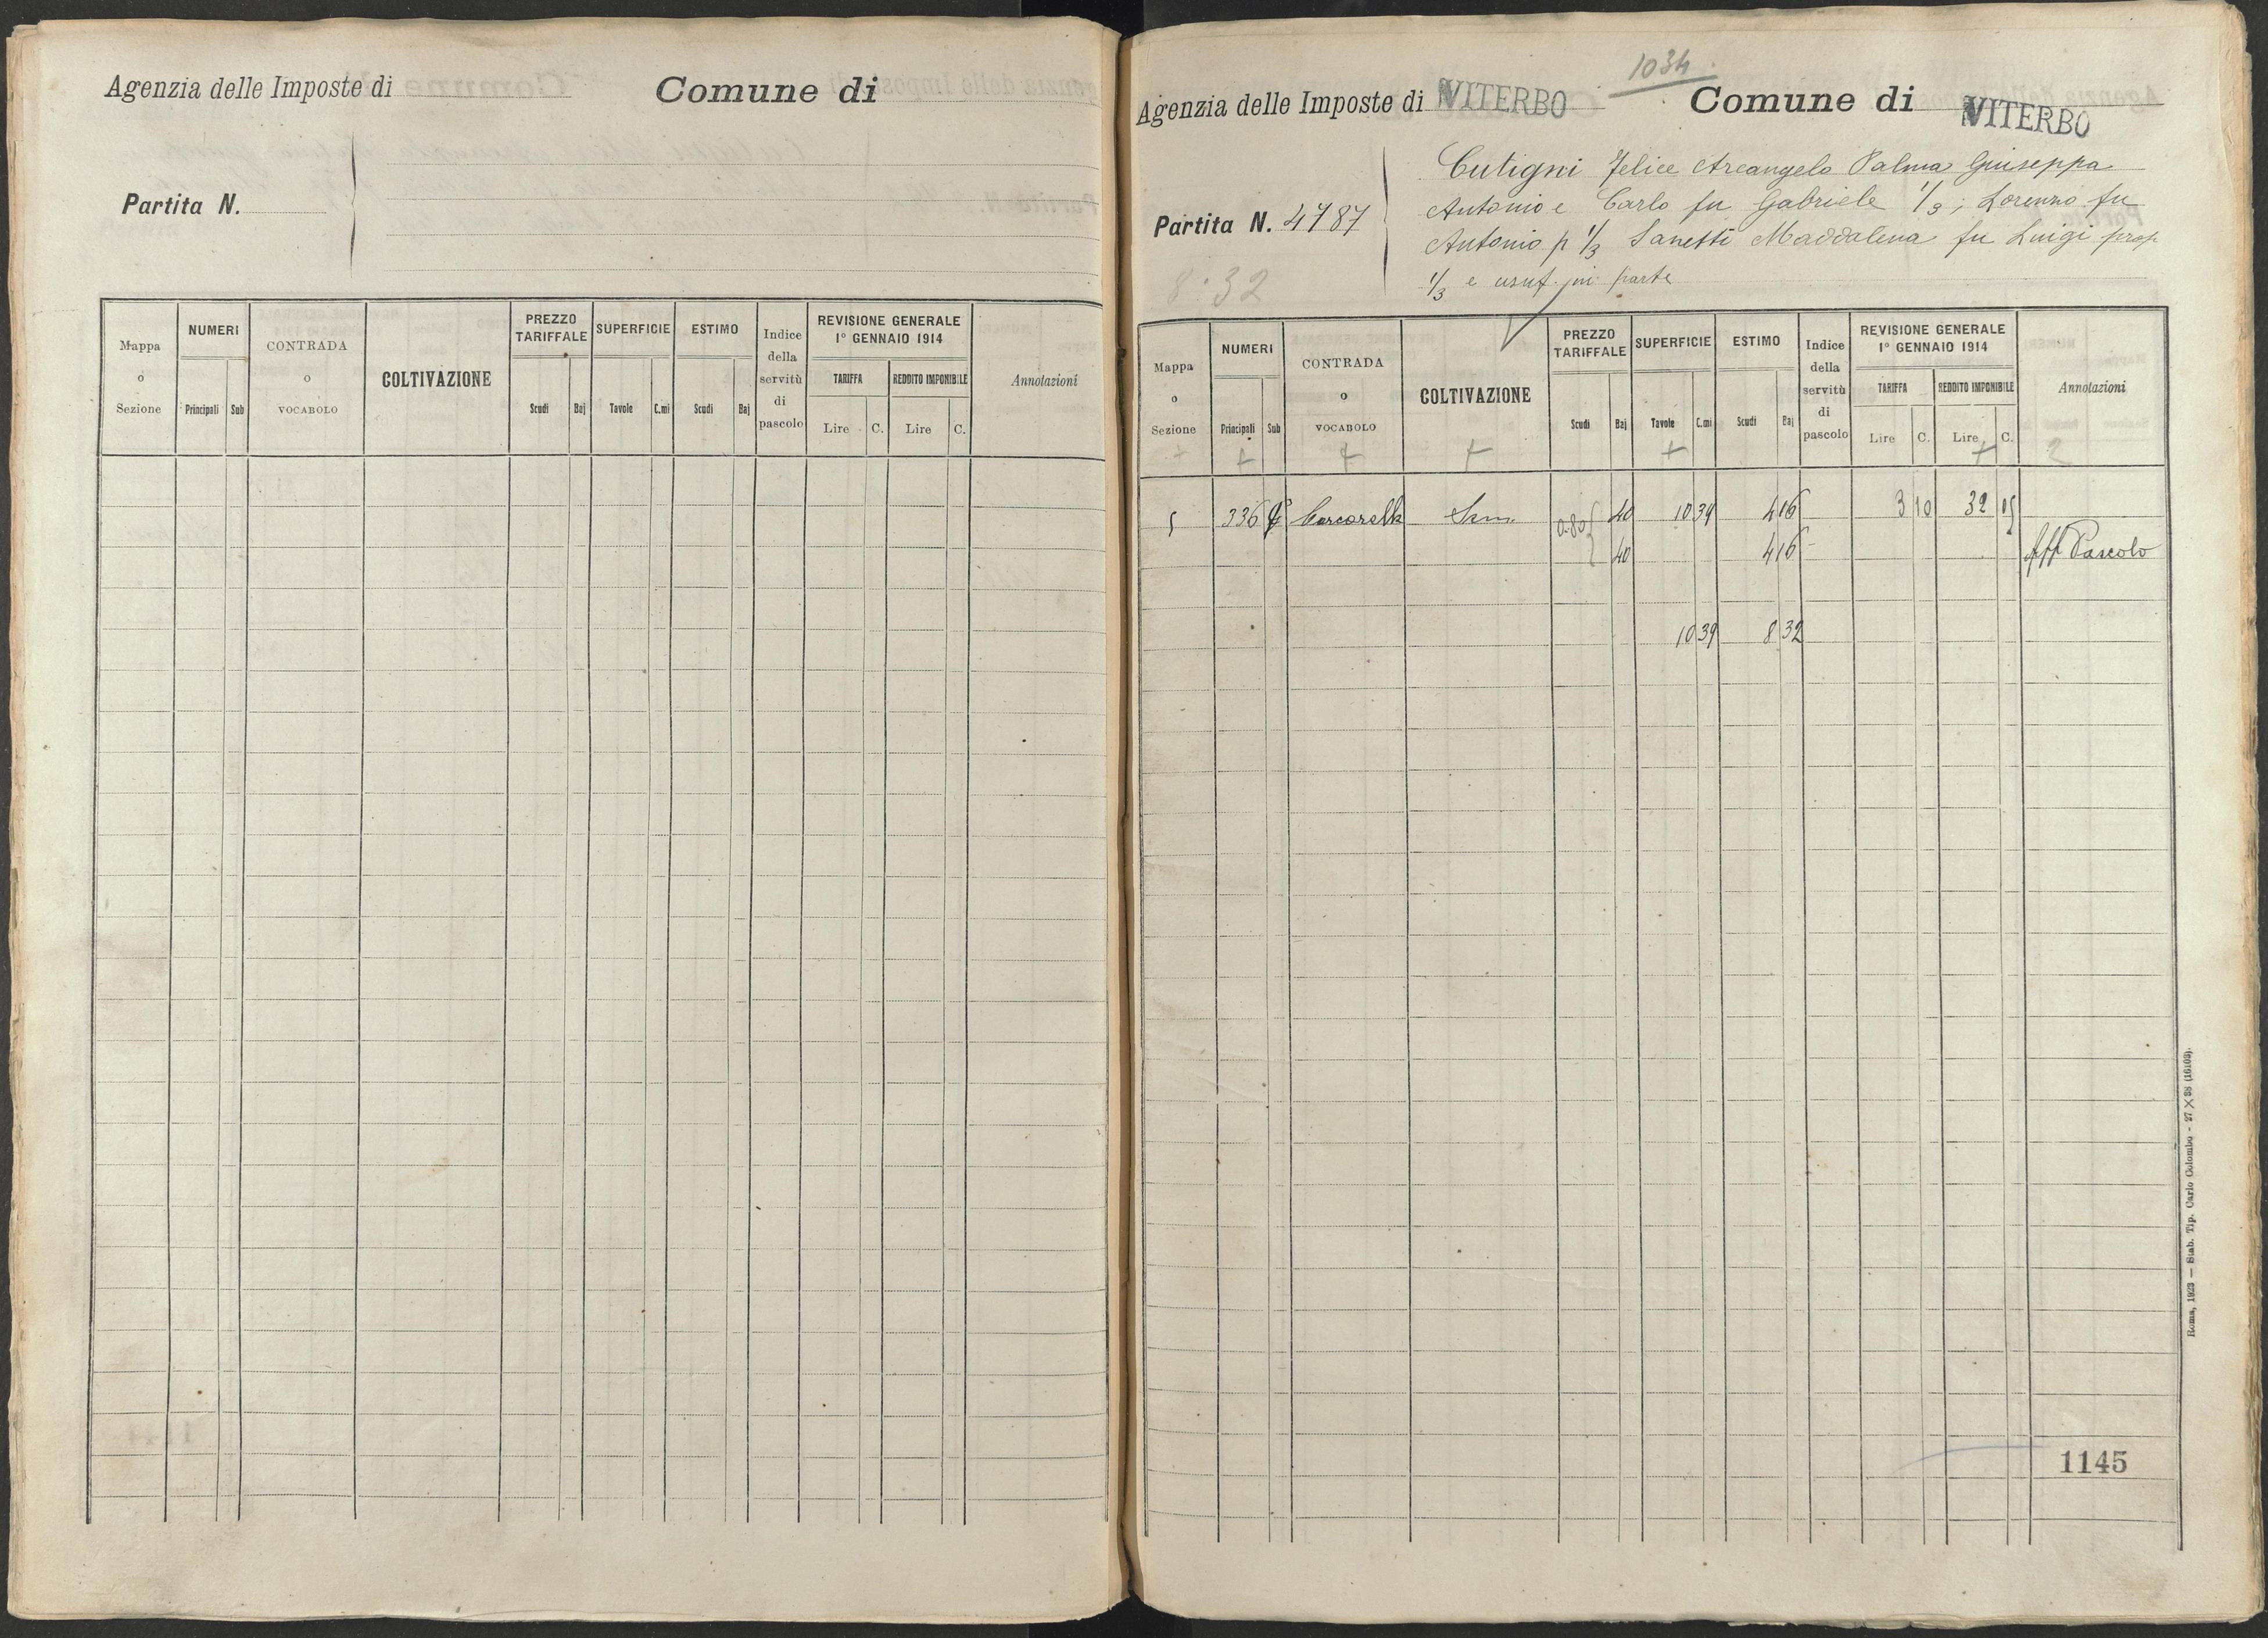 Agenzia delle Imposte di
Comune di
Partita N.
Mappa o Sezione
NUMERI
Principali Sub
CONTRADA o VOCABOLO
COLTIVAZIONE
PREZZO TARIFFALE
Scudi Baj
SUPERFICIE
Tavole C.mi
ESTIMO
Scudi Baj
Indice della servitù di pascolo
REVISIONE GENERALE
1° GENNAIO 1914
TARIFFA
Lire C.
REDDITO IMPONIBILE
Lire C.
Annotazioni
1034
Agenzia delle Imposte di VITERBO
Comune di VITERBO
Partita N. 4787
Cutigni Felice Arcangelo Palma Giuseppa
Antonio e Carlo fu Gabriele 1/3; Lorenzo fu
Antonio p 1/3 Sanetti Maddalena fu Luigi prop
1/3 e usuf. in parte
8:32
Mappa o Sezione
NUMERI
Principali Sub
CONTRADA o VOCABOLO
COLTIVAZIONE
PREZZO TARIFFALE
Scudi Baj
SUPERFICIE
Tavole C.mi
ESTIMO
Scudi Baj
Indice della servitù di pascolo
REVISIONE GENERALE
1° GENNAIO 1914
TARIFFA
Lire C.
REDDITO IMPONIBILE
Lire C.
Annotazioni
+ + + + + + 2
5 336 Sem. 0.80 40 10 39 4 16 3 10 32
40 4 16 Aff Pascolo
10 39 8 32
1145
Roma, 1923 — Stab. Tip. Carlo Colombo - 27 X 38 (16103).